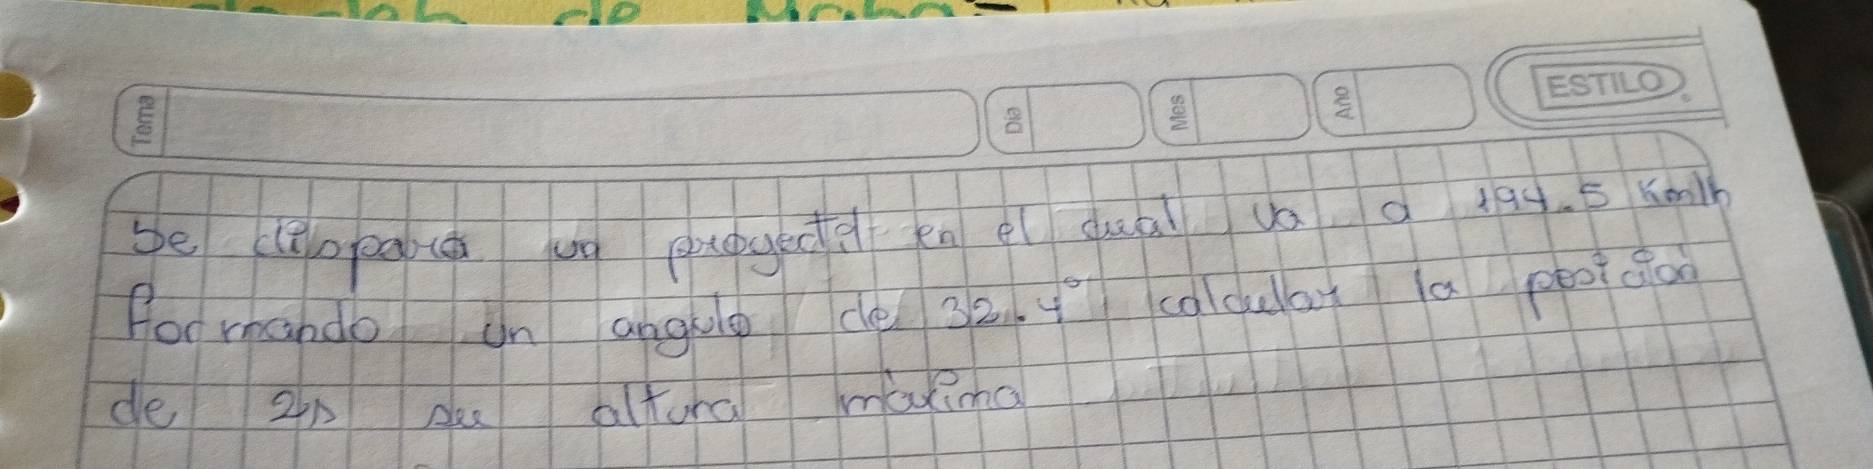 Tema
Dia
Mes
Año
ESTILO
Se dispara un proyectil en el cual va a 194.5 Km/h
Formando un angulo de 32.4° calcular la posicion
de 2s su altura maxima